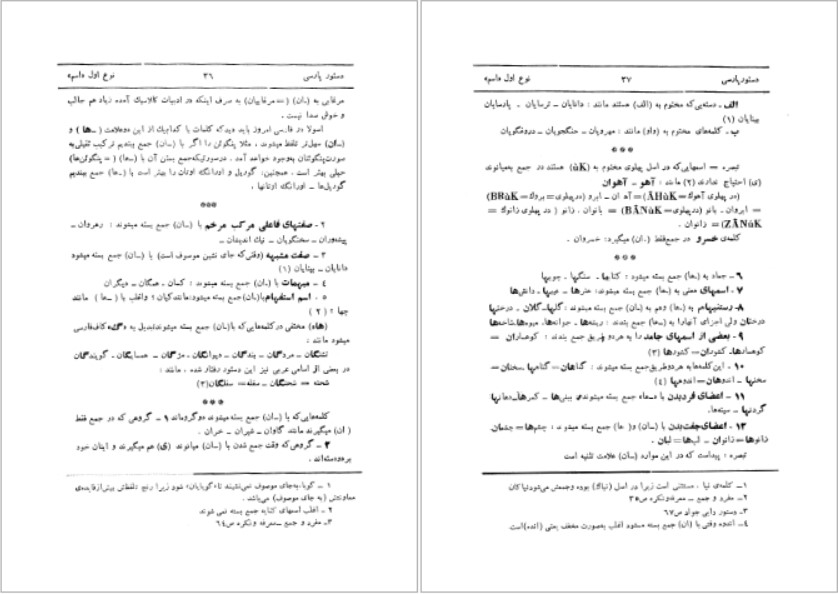 دستور پارسی ۳٦ نوع اول «اسم»
مرغابی به (ـ ان) (= مرغابیان) به صرف اینکه در ادبیات کلاسیك آمده زیاد هم جالب
و خوش صدا نیست .
اصولا در فارسی امروز باید دید که کلمات با کدامیك از این دوعلامت ( ـ ها ) و
(ـ ان) سهل‌تر تلفظ میشوند ، مثلا پنگوئن را اگر با (ـ ان) جمع ببندیم ترکیب ثقیلی به
صورت پنگوئنان به‌وجود خواهد آمد . درصورتیکه جمع بستن آن با (ـ ها) ( = پنگوئن‌ها)
خیلی بهتر است . همچنین: گودیل و اورانگ اوتان را بهتر است با (ـ ها) جمع ببندیم
گودیل‌ها ـ اورانگ اوتانها .
***
۲ ـ صفتهای فاعلی مرکب مرخم با (ـ ان) جمع بسته میشوند : رهروان ـ
پیشه‌وران ـ سخنگویان ـ نیك اندیشان ـ
۳ ـ صفت مشبهه (وقتی که جای نشین موصوف است) با (ـ ان) جمع بسته میشود
دانایان ـ بینایان (۱)
٤ ـ مبهمات با (ـ ان) جمع بسته میشوند : کسان ـ همگان ـ دیگران
۵ . اسم استفهام با (ـ ان) جمع بسته میشود: مانند کیان ؛ واغلب با (ـ ها ) مانند
چها ؛ ( ۲ )
(هاء) مختفی در کلمه‌هایی که با (ـ ان) جمع بسته میشوند تبدیل به «گ» کاف فارسی
میشود مانند :
تشنگان ـ مردگان ـ بندگان ـ دیوانگان ـ مژگان ـ همسایگان ـ گویندگان
در بعضی از اسامی عربی نیز این دستور رفتار شده . مانند :
شحنه = شحنگان ـ سفله = سفلگان (۳)
***
کلمه‌هایی که با (ـ ان) جمع بسته میشوند دوگروه‌اند ۱ ـ گروهی که در جمع فقط
( ان ) میگیرند مانند گاوان ـ شیران ـ خران .
۲ ـ گروهی که وقت جمع شدن با (ـ ان) میانوند (ی) هم میگیرند و اینان خود
بر دو دسته‌اند .
۱ ـ گویا، به‌جای موصوف نمی‌نشیند تا «گویایان» شود زیرا رنج تلفظش بیش از فایده‌ی
معاونتش (به جای موصوف) می‌باشد .
۲ ـ اغلب اسمهای کنایه جمع بسته نمی شوند
۳ـ مفرد و جمع ـ معرفه و نکره ص ٦٤
دستور پارسی ۳۷ نوع اول «اسم»
الف ـ دسته‌یی که مختوم به (الف) هستند مانند : دانایان ـ ترسایان ـ پارسایان
بینایان (۱)
ب ـ کلمه‌های مختوم به (واو) مانند : مهرویان ـ جنگجویان ـ دروغگویان
***
تبصره = اسمهایی که در اصل پهلوی مختوم به (ūK) هستند در جمع به‌میانوند
(ی) احتیاج ندارند (۲) مانند : آهو ـ آهوان
(در پهلوی آهوك = ĀHūK) = آهـ ان ـ ابرو (در پهلوی = بروك = BRūK)
= ابروان ـ بانو (درپهلوی = BĀNūK) = بانوان . زانو ( در پهلوی زانوك =
ZĀNūK) = زانوان .
کلمه‌ی خسرو در جمع فقط (ـ ان) میگیرد: خسروان .
***
٦ ـ جماد به (ـ ها) جمع بسته میشود : کتابها ـ سنگها ـ چوبها
۷ . اسمهای معنی به (ـ ها) جمع بسته میشوند: هنرها ـ عیبها ـ دانش‌ها
۸ ـ رستنیهام به (ـ ها) وهم به (ـ ان) جمع بسته میشوند : گلها ـ گلان ـ درختها
درختان ولی اجزای آنها را به (ـ ها) جمع بندند : ریشه‌ها ـ جوانه‌ها، میوه‌ها، شاخه‌ها
۹ ـ بعضی از اسمهای جامد را به هر دو طریق جمع بندند : کوهساران =
کوهسارها ـ کشوران = کشورها (۳)
۱۰ ـ این کلمه‌ها به هر دو طریق جمع بسته میشوند : گناهان = گناهها ـ سخنان =
سخنها ـ اندوهان = اندوهها (٤)
۱۱ ـ اعضای فرد بدن با «ـ ها» جمع بسته میشوند، بینی‌ها ـ کمرها ـ دهانها
گردنها ـ سینه‌ها.
۱۲ ـ اعضای جفت بدن با (ـ ان) و( ها ) جمع بسته میشوند : چشمها = چشمان
زانوها = زانوان ـ لب‌ها = لبان .
تبصره : پیداست که در این موارد (ـ ان) علامت تثنیه است
۱ـ کلمه‌ی نیا . مستثنی است زیرا در اصل (نیاك) بوده و جمعش می‌شود نیاکان
۲ـ مفرد و جمع ـ معرفه و نکره ص ۳۵
۳ـ دستور دایی جواد ص ٦۷
٤ـ اندوه وقتی با (ان) جمع بسته میشود اغلب به‌صورت مخفف یعنی (انده) است